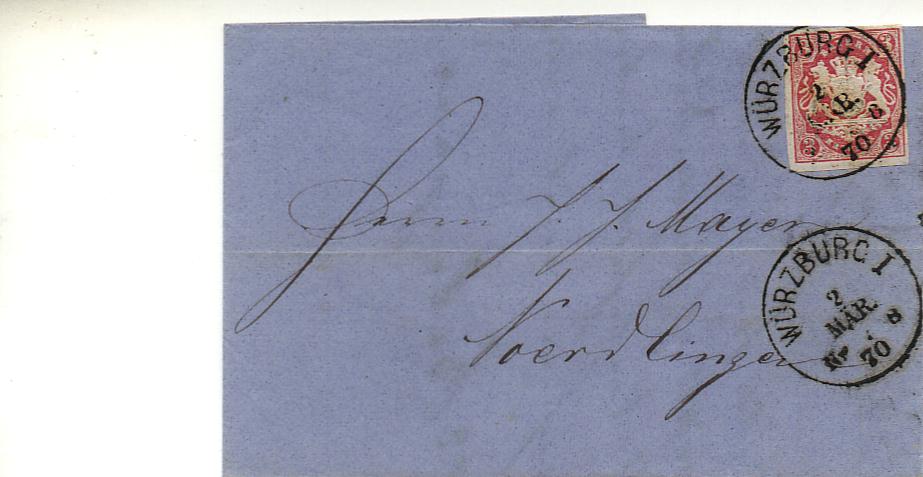 WÜRZBURG I
2
MÄR.
8
70
3
3
Herrn J. J. Mayer
Noerdlingen
WÜRZBURG I
2
MÄR.
N 8
70